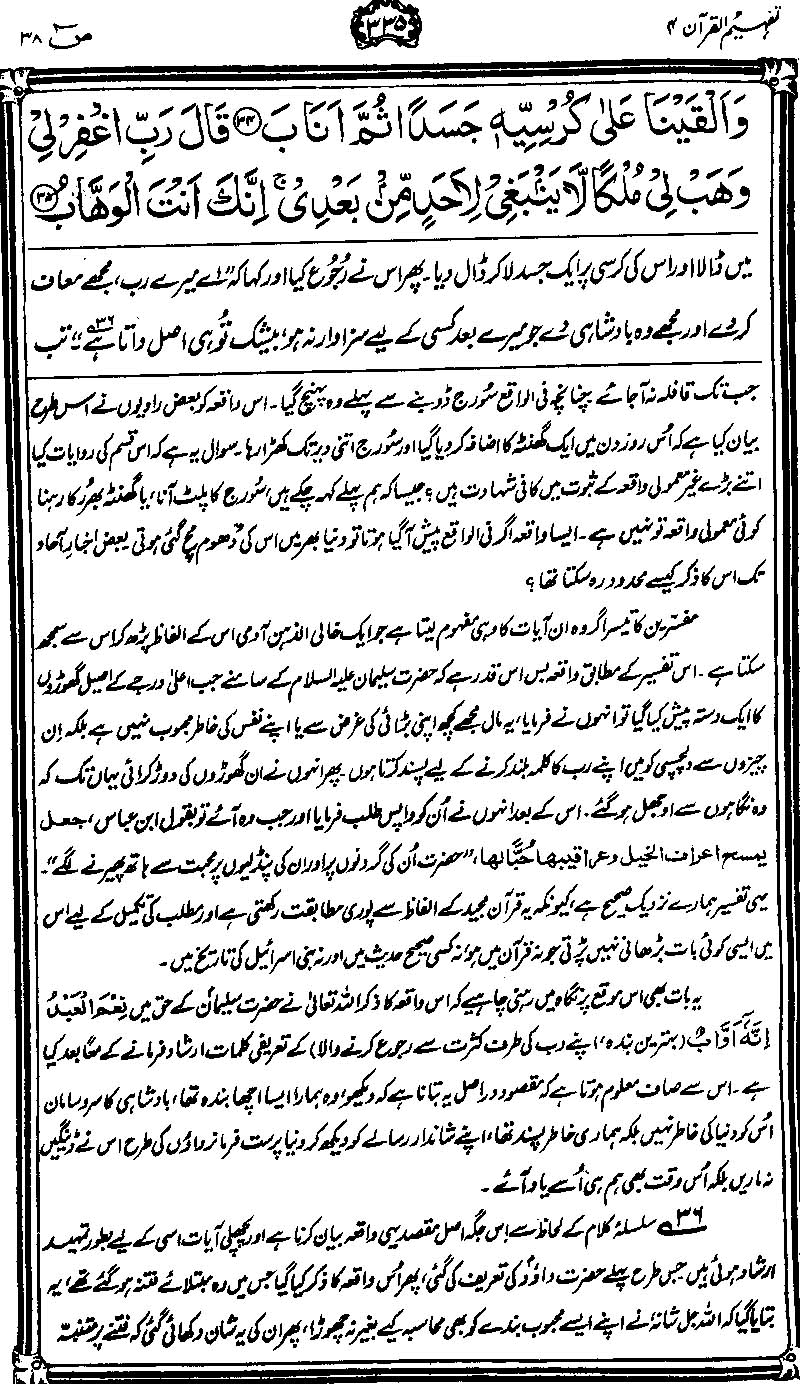 تفہیم القرآن ۴
۳۳۵
صٓ ۳۸
وَاَلْقَيْنَا عَلٰى كُرْسِيِّهٖ جَسَدًا ثُمَّ اَنَابَ ﴿۳۴﴾ قَالَ رَبِّ اغْفِرْ لِيْ
وَهَبْ لِيْ مُلْكًا لَّا يَنْۢبَغِيْ لِاَحَدٍ مِّنْۢ بَعْدِيْ ۚ اِنَّكَ اَنْتَ الْوَهَّابُ ﴿۳۵﴾
میں ڈالا اور اس کی کرسی پر ایک جسد لا کر ڈال دیا۔ پھر اس نے رُجوع کیا اور کہا کہ ”اے میرے رب، مجھے معاف
کر دے اور مجھے وہ بادشاہی دے جو میرے بعد کسی کے لیے سزاوار نہ ہو، بیشک تُو ہی اصل داتا ہے۳۶“۔ تب
جب تک قافلہ نہ آجائے چنانچہ فی الواقع سُورج ڈوبنے سے پہلے وہ پہنچ گیا۔ اس واقعہ کو بعض راویوں نے اس طرح
بیان کیا ہے کہ اُس روز دن میں ایک گھنٹہ کا اضافہ کر دیا گیا اور سُورج اتنی دیر تک کھڑا رہا۔ سوال یہ ہے کہ اس قسم کی روایات کیا
اتنے بڑے غیر معمولی واقعہ کے ثبوت میں کافی شہادت ہیں؟ جیسا کہ ہم پہلے کہہ چکے ہیں، سُورج کا پلٹ آنا، یا گھنٹہ بھر رُکا رہنا
کوئی معمولی واقعہ تو نہیں ہے۔ ایسا واقعہ اگر فی الواقع پیش آگیا ہوتا تو دنیا بھر میں اس کی دھوم مچ گئی ہوتی۔ بعض اخبارِ آحاد
تک اس کا ذکر کیسے محدود رہ سکتا تھا؟
مفسّرین کا تیسرا گروہ ان آیات کا وہی مفہوم لیتا ہے جو ایک خالی الذہن آدمی اس کے الفاظ پڑھ کر اس سے سمجھ
سکتا ہے۔ اس تفسیر کے مطابق واقعہ بس اس قدر ہے کہ حضرت سلیمان علیہ السلام کے سامنے جب اعلیٰ درجے کے اصیل گھوڑوں
کا ایک دستہ پیش کیا گیا تو انہوں نے فرمایا، یہ مال مجھے کچھ اپنی بڑائی کی غرض سے یا اپنے نفس کی خاطر محبوب نہیں ہے بلکہ اِن
چیزوں سے دلچسپی کو میں اپنے رب کا کلمہ بلند کرنے کے لیے پسند کرتا ہوں۔ پھر انہوں نے ان گھوڑوں کی دوڑ کرائی یہاں تک کہ
وہ نگاہوں سے اوجھل ہو گئے۔ اس کے بعد انہوں نے اُن کو واپس طلب فرمایا اور جب وہ آئے تو بقول ابن عباس، جعل
يمسح اعراف الخيل وعراقيبها حُبًّا لها، ”حضرت اُن کی گردنوں پر اور ان کی پنڈلیوں پر محبت سے ہاتھ پھیرنے لگے“۔
یہی تفسیر ہمارے نزدیک صحیح ہے، کیونکہ یہ قرآن مجید کے الفاظ سے پوری مطابقت رکھتی ہے اور مطلب کی تکمیل کے لیے اس
میں ایسی کوئی بات بڑھانی نہیں پڑتی جو نہ قرآن میں ہو، نہ کسی صحیح حدیث میں اور نہ بنی اسرائیل کی تاریخ میں۔
یہ بات بھی اس موقع پر نگاہ میں رہنی چاہیے کہ اس واقعہ کا ذکر اللہ تعالیٰ نے حضرت سلیمان کے حق میں نِعْمَ الْعَبْدُ
اِنَّهٗٓ اَوَّابٌ (بہترین بندہ، اپنے رب کی طرف کثرت سے رجوع کرنے والا) کے تعریفی کلمات ارشاد فرمانے کے معًا بعد کیا
ہے۔ اس سے صاف معلوم ہوتا ہے کہ مقصود دراصل یہ بتانا ہے کہ دیکھو، وہ ہمارا ایسا اچھا بندہ تھا، بادشاہی کا سروسامان
اُس کو دنیا کی خاطر نہیں بلکہ ہماری خاطر پسند تھا، اپنے شاندار رسالے کو دیکھ کر دنیا پرست فرمانرواؤں کی طرح اس نے ڈینگیں
نہ ماریں بلکہ اُس وقت بھی ہم ہی اُسے یاد آئے۔
۳۶ سلسلۂ کلام کے لحاظ سے اِس جگہ اصل مقصد یہی واقعہ بیان کرنا ہے اور پچھلی آیات اسی کے لیے بطور تمہید
ارشاد ہوئی ہیں۔ جس طرح پہلے حضرت داؤد کی تعریف کی گئی، پھر اُس واقعہ کا ذکر کیا گیا جس میں وہ مبتلائے فتنہ ہو گئے تھے، یہ
بتایا گیا کہ اللہ جل شانہٗ نے اپنے ایسے محبوب بندے کو بھی محاسبہ کیے بغیر نہ چھوڑا، پھر ان کی یہ شان دکھائی گئی کہ فتنے پر متنبّہ